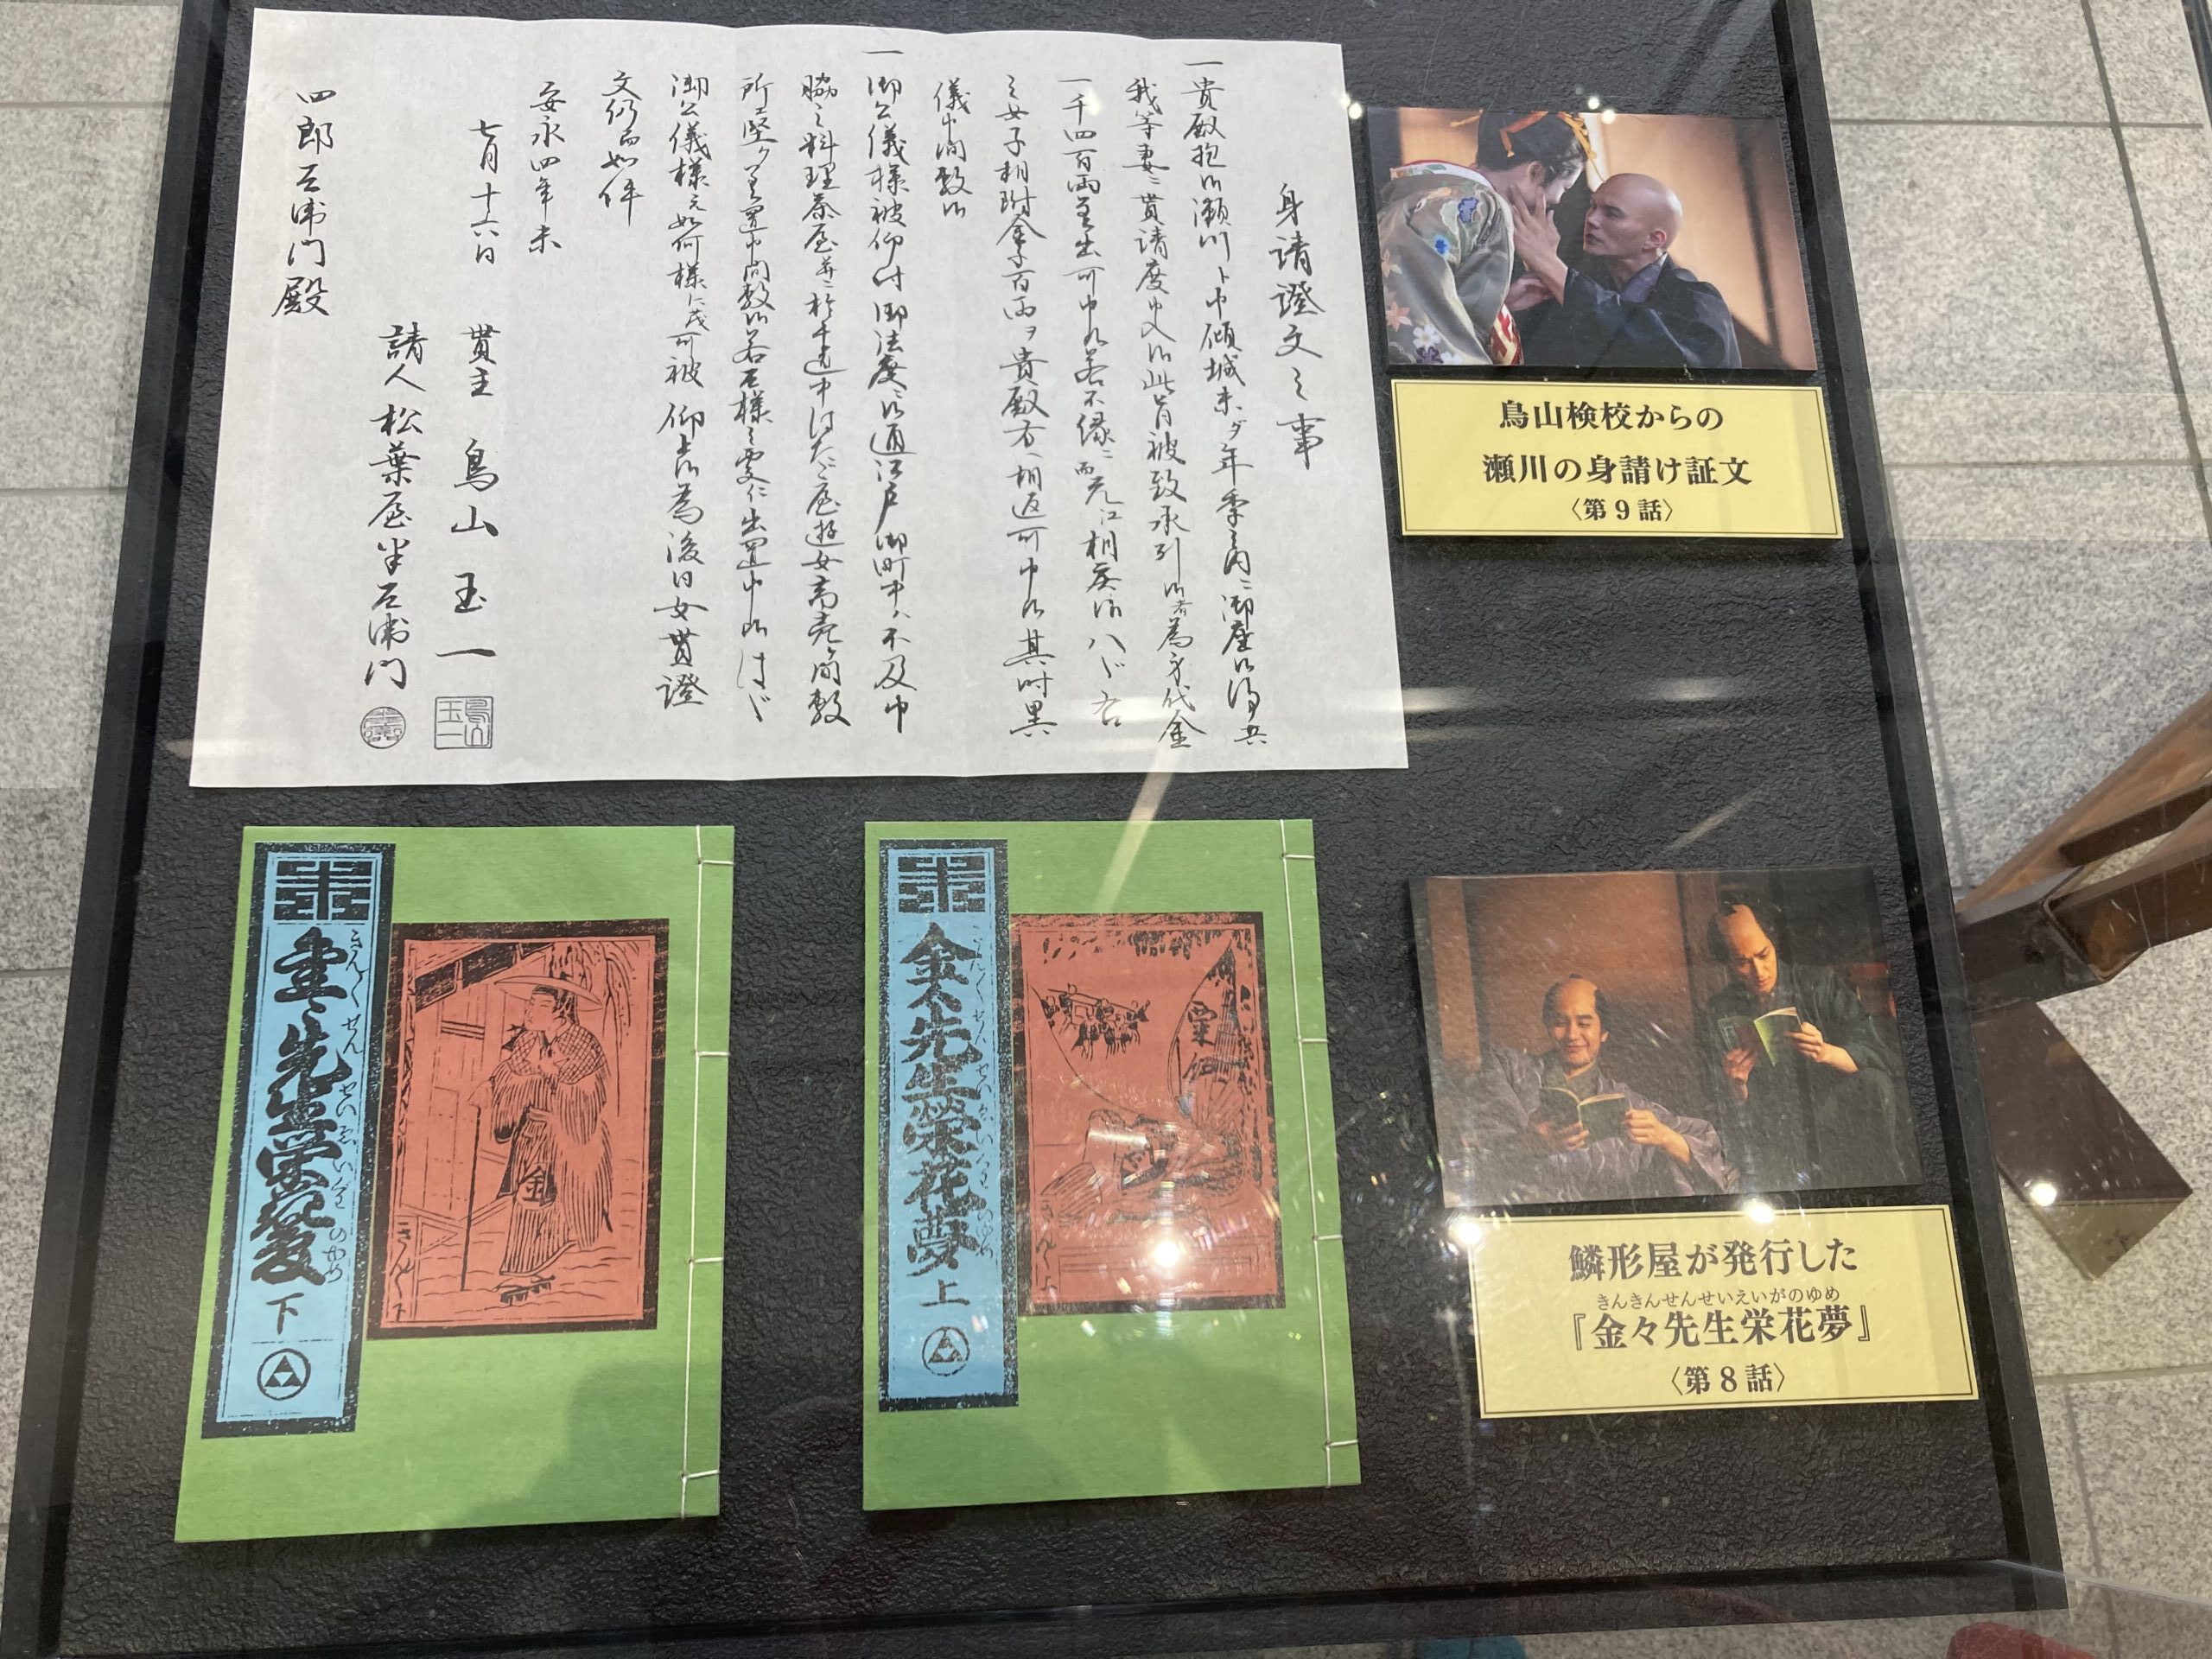 身請證文之事
一貴殿抱候瀬川ト申傾城未ダ年季之内ニ御座候得共
我等妻ニ貰請度申入候此旨被致承引候者為身代金
一千四百両差出可申候若不縁ニ而
之女子相附金子百両ヲ貴殿方へ相返可申候其時異
儀申間敷候
一御公儀様被仰付御法度ニ候通江戸御町中ハ不及申
脇之料理茶屋并ニ於千道中はたご屋遊女商売ケ間敷
所江堅ク差置申間敷候若左様之
御公儀様江如何様に茂可被仰上候為後日女貰證
文仍而如件
安永四年未
七月十六日
貰主 鳥山玉一
鳥山玉一
請人 松葉屋半左衛門
四郎兵衛門殿
鳥山検校からの
瀬川の身請け証文
〈第9話〉
金々先生栄花夢 下
きんくせんせいゑいぐわのゆめ
金
金々先生榮花夢 上
きんくせんせいゑいぐわのゆめ
粟
鱗形屋が発行した
きんきんせんせいえいがのゆめ
『金々先生栄花夢』
〈第8話〉